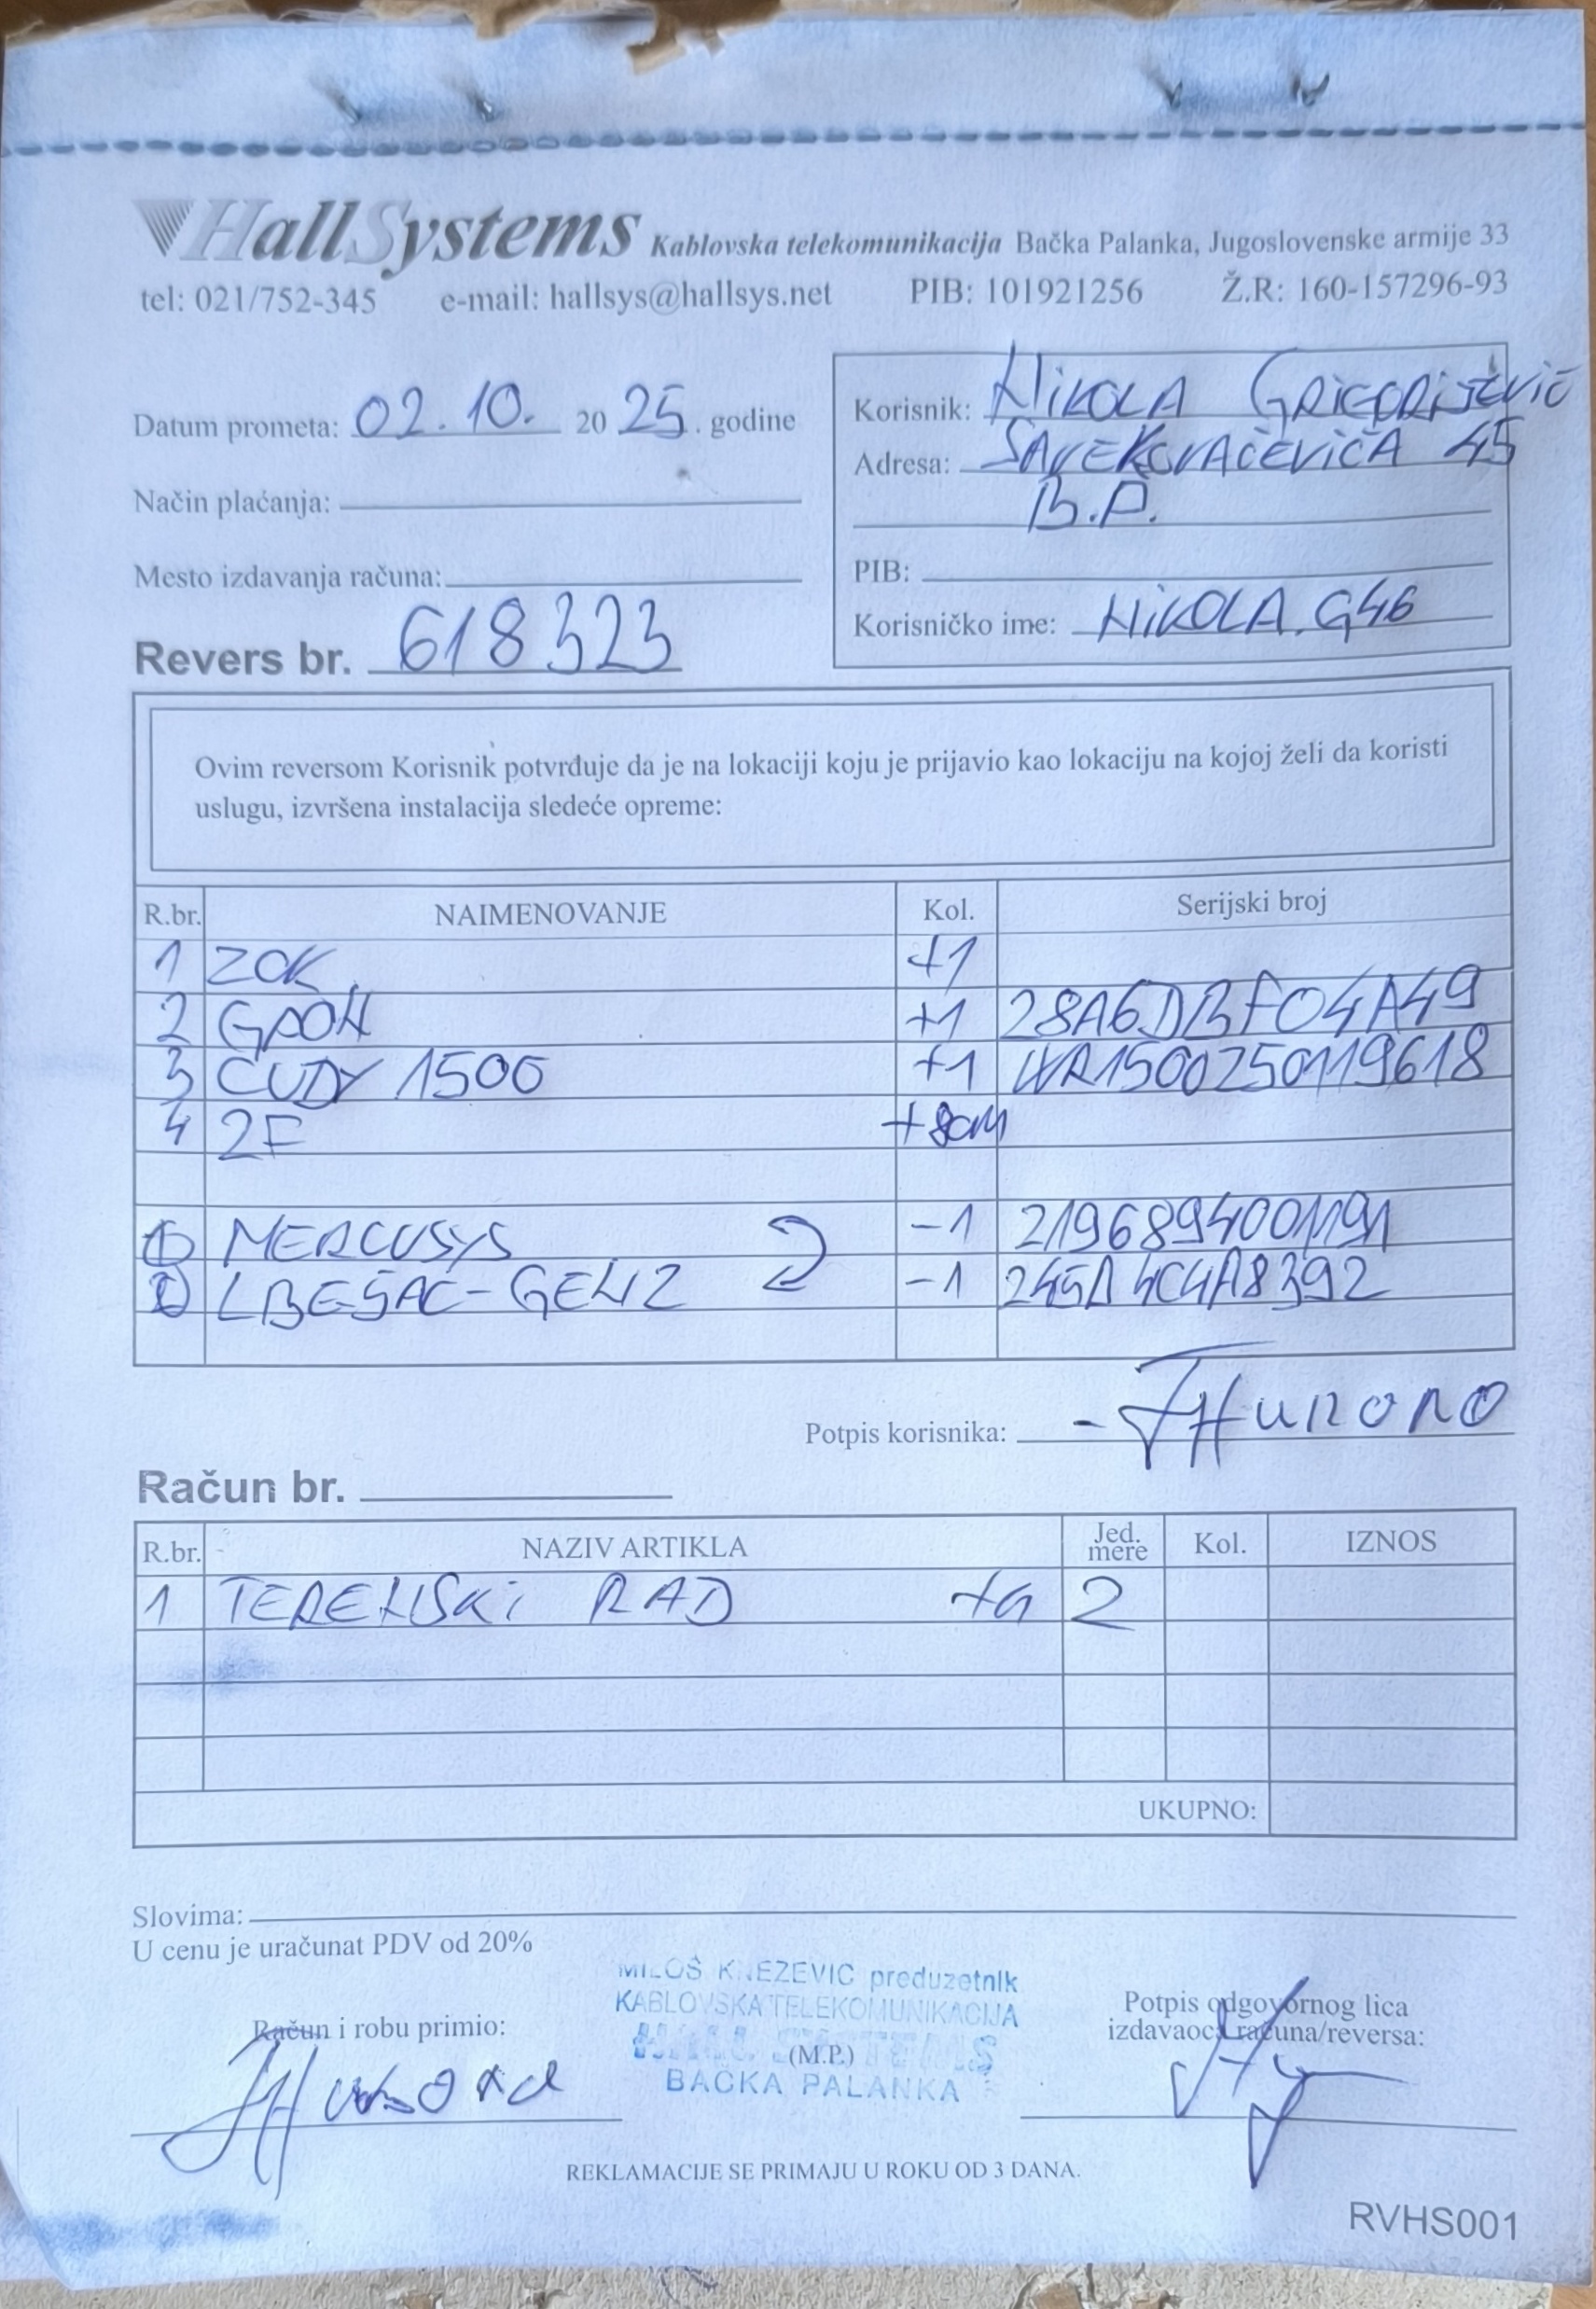 HallSystems Kablovska telekomunikacija Bačka Palanka, Jugoslovenske armije 33
tel: 021/752-345 e-mail: hallsys@hallsys.net PIB: 101921256 Ž.R: 160-157296-93
Datum prometa: 02.10. 2025. godine
Način plaćanja:
Mesto izdavanja računa:
Revers br. 618323
Korisnik: NIKOLA
Adresa: SAVE KOVAČEVIĆA 45
B.P.
PIB:
Korisničko ime: NIKOLA.G46
Ovim reversom Korisnik potvrđuje da je na lokaciji koju je prijavio kao lokaciju na kojoj želi da koristi
uslugu, izvršena instalacija sledeće opreme:
R.br. NAIMENOVANJE Kol. Serijski broj
1 ZOK +1
2 GPON +1 28A6DBF04A49
3 CUDY 1500 +1 WR1500250119618
4 2F +80M
1 MERCUSYS -1 2196894001191
2 LBE5AC-GEN2 -1 245A4C4A8392
Potpis korisnika:
Račun br.
R.br. NAZIV ARTIKLA Jed. mere Kol. IZNOS
1 TERENSKI RAD 2
UKUPNO:
Slovima:
U cenu je uračunat PDV od 20%
Račun i robu primio:
MILOŠ KNEŽEVIĆ preduzetnik
KABLOVSKA TELEKOMUNIKACIJA
HALL SYSTEMS
(M.P.)
BAČKA PALANKA
Potpis odgovornog lica
izdavaoca računa/reversa:
REKLAMACIJE SE PRIMAJU U ROKU OD 3 DANA.
RVHS001